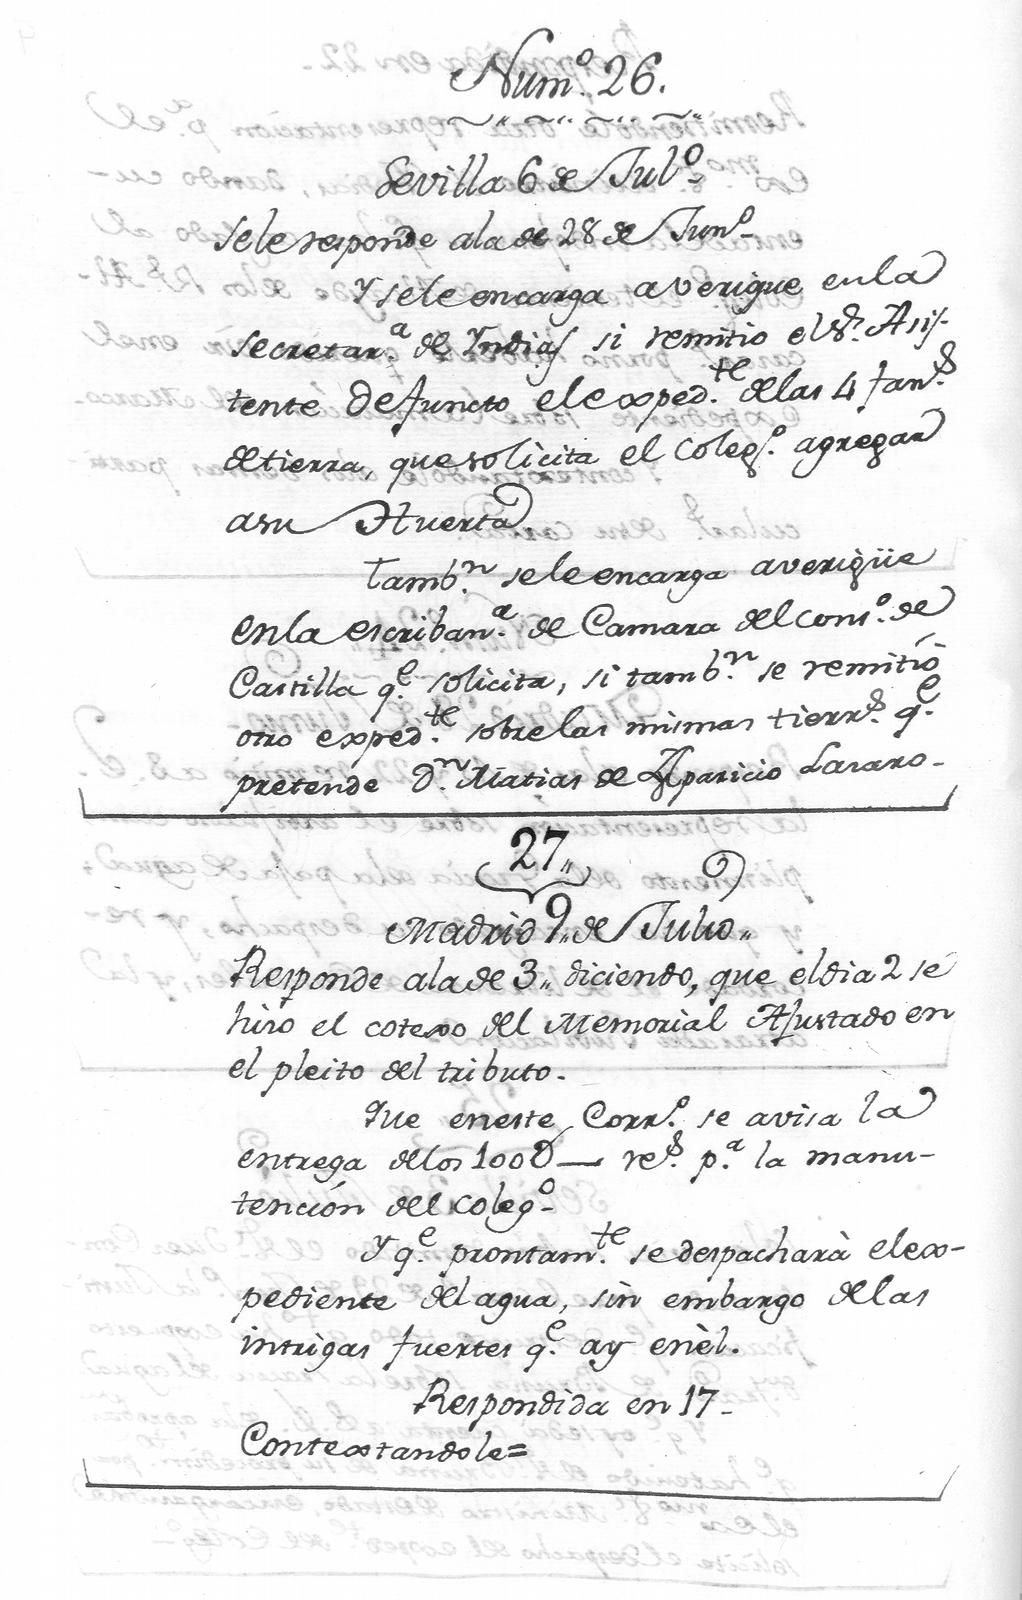 Numº. 26.
Sevilla 6 de Julº.
Se le responde a la de 28 de Junº.
Y se le encarga averigue en la
secretar.ª de Yndias si remitio el Sr. Asis-
tente defuncto el exped.te de las 4 fan.s
de tierra, que solicita el Coleg.º agregar
a su Huerta.
Tamb.n se le encarga averigüe
en la escriban.ª de Camara del cons.º de
Castilla q.e solicita, si tamb.n se remitió
otro exped.te sobre las mismas tierr.s q.e
pretende D.n Matias de Aparicio Lasaro-
27,,
Madrid 9,, de Julio,,
Responde a la de 3,, diciendo, que el dia 2 se
hiso el cotexo del Memorial Ajustado en
el pleito del tributo.
Que en este Corr.º se avisa la
entrega de los 100D— re.s p.ª la manu-
tención del Colegº-
Y q.e prontam.te se despachará el ex-
pediente del agua, sin embargo de las
intrigas fuertes q.e ay en èl.
Respondida en 17-
Contextandole=